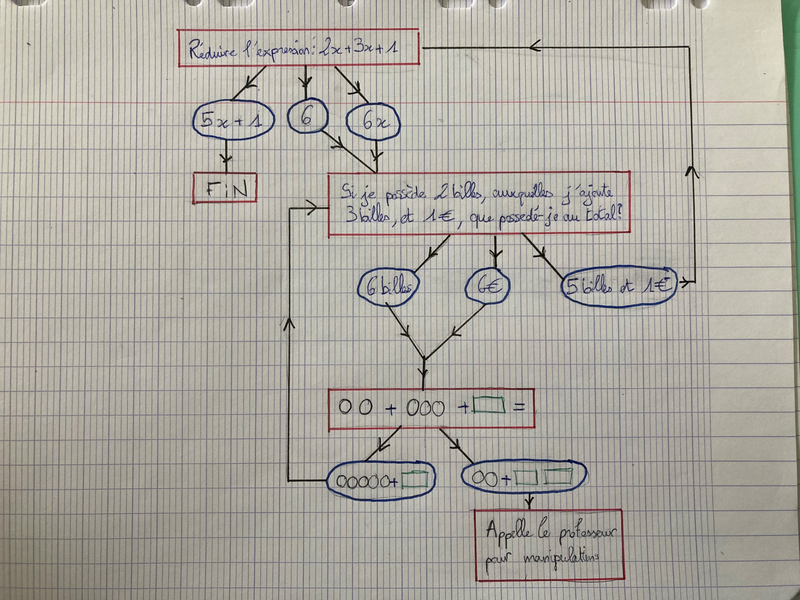 Réduire l'expression: 2x+3x+1
5x+1
6
6x
FiN
Si je possède 2 billes, auxquelles j'ajoute
3 billes, et 1€, que possedé-je au total?
6 billes
6€
5 billes et 1€
OO + OOO + □ =
OOOOO+□
OO+□ □
Appelle le professeur
pour manipulations